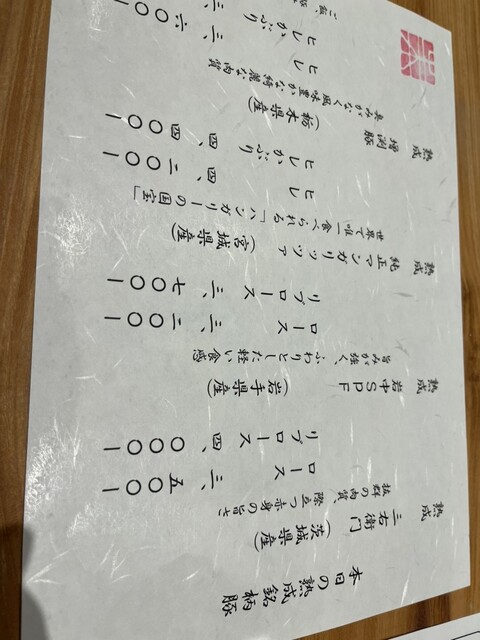 本日の熟成銘柄豚
熟成 三右衛門(茨城県産)
抜群の肉質、際立つ赤身の旨さ
ロース 三、五〇〇ー
リブロース 四、〇〇〇ー
熟成 岩中SPF(岩手県産)
旨みが強く、ふわりとした軽い食感
ロース 三、二〇〇ー
リブロース 三、七〇〇ー
熟成 純正マンガリッツァ(宮城県産)
世界で唯一食べられる「ハンガリーの国宝」
ヒレ 四、二〇〇ー
ヒレかぶり 四、四〇〇ー
熟成 増渕豚(栃木県産)
臭みがなく、風味豊かな綺麗な肉質
ヒレ 三、六〇〇ー
ヒレかぶり 三、
ご飯、豚